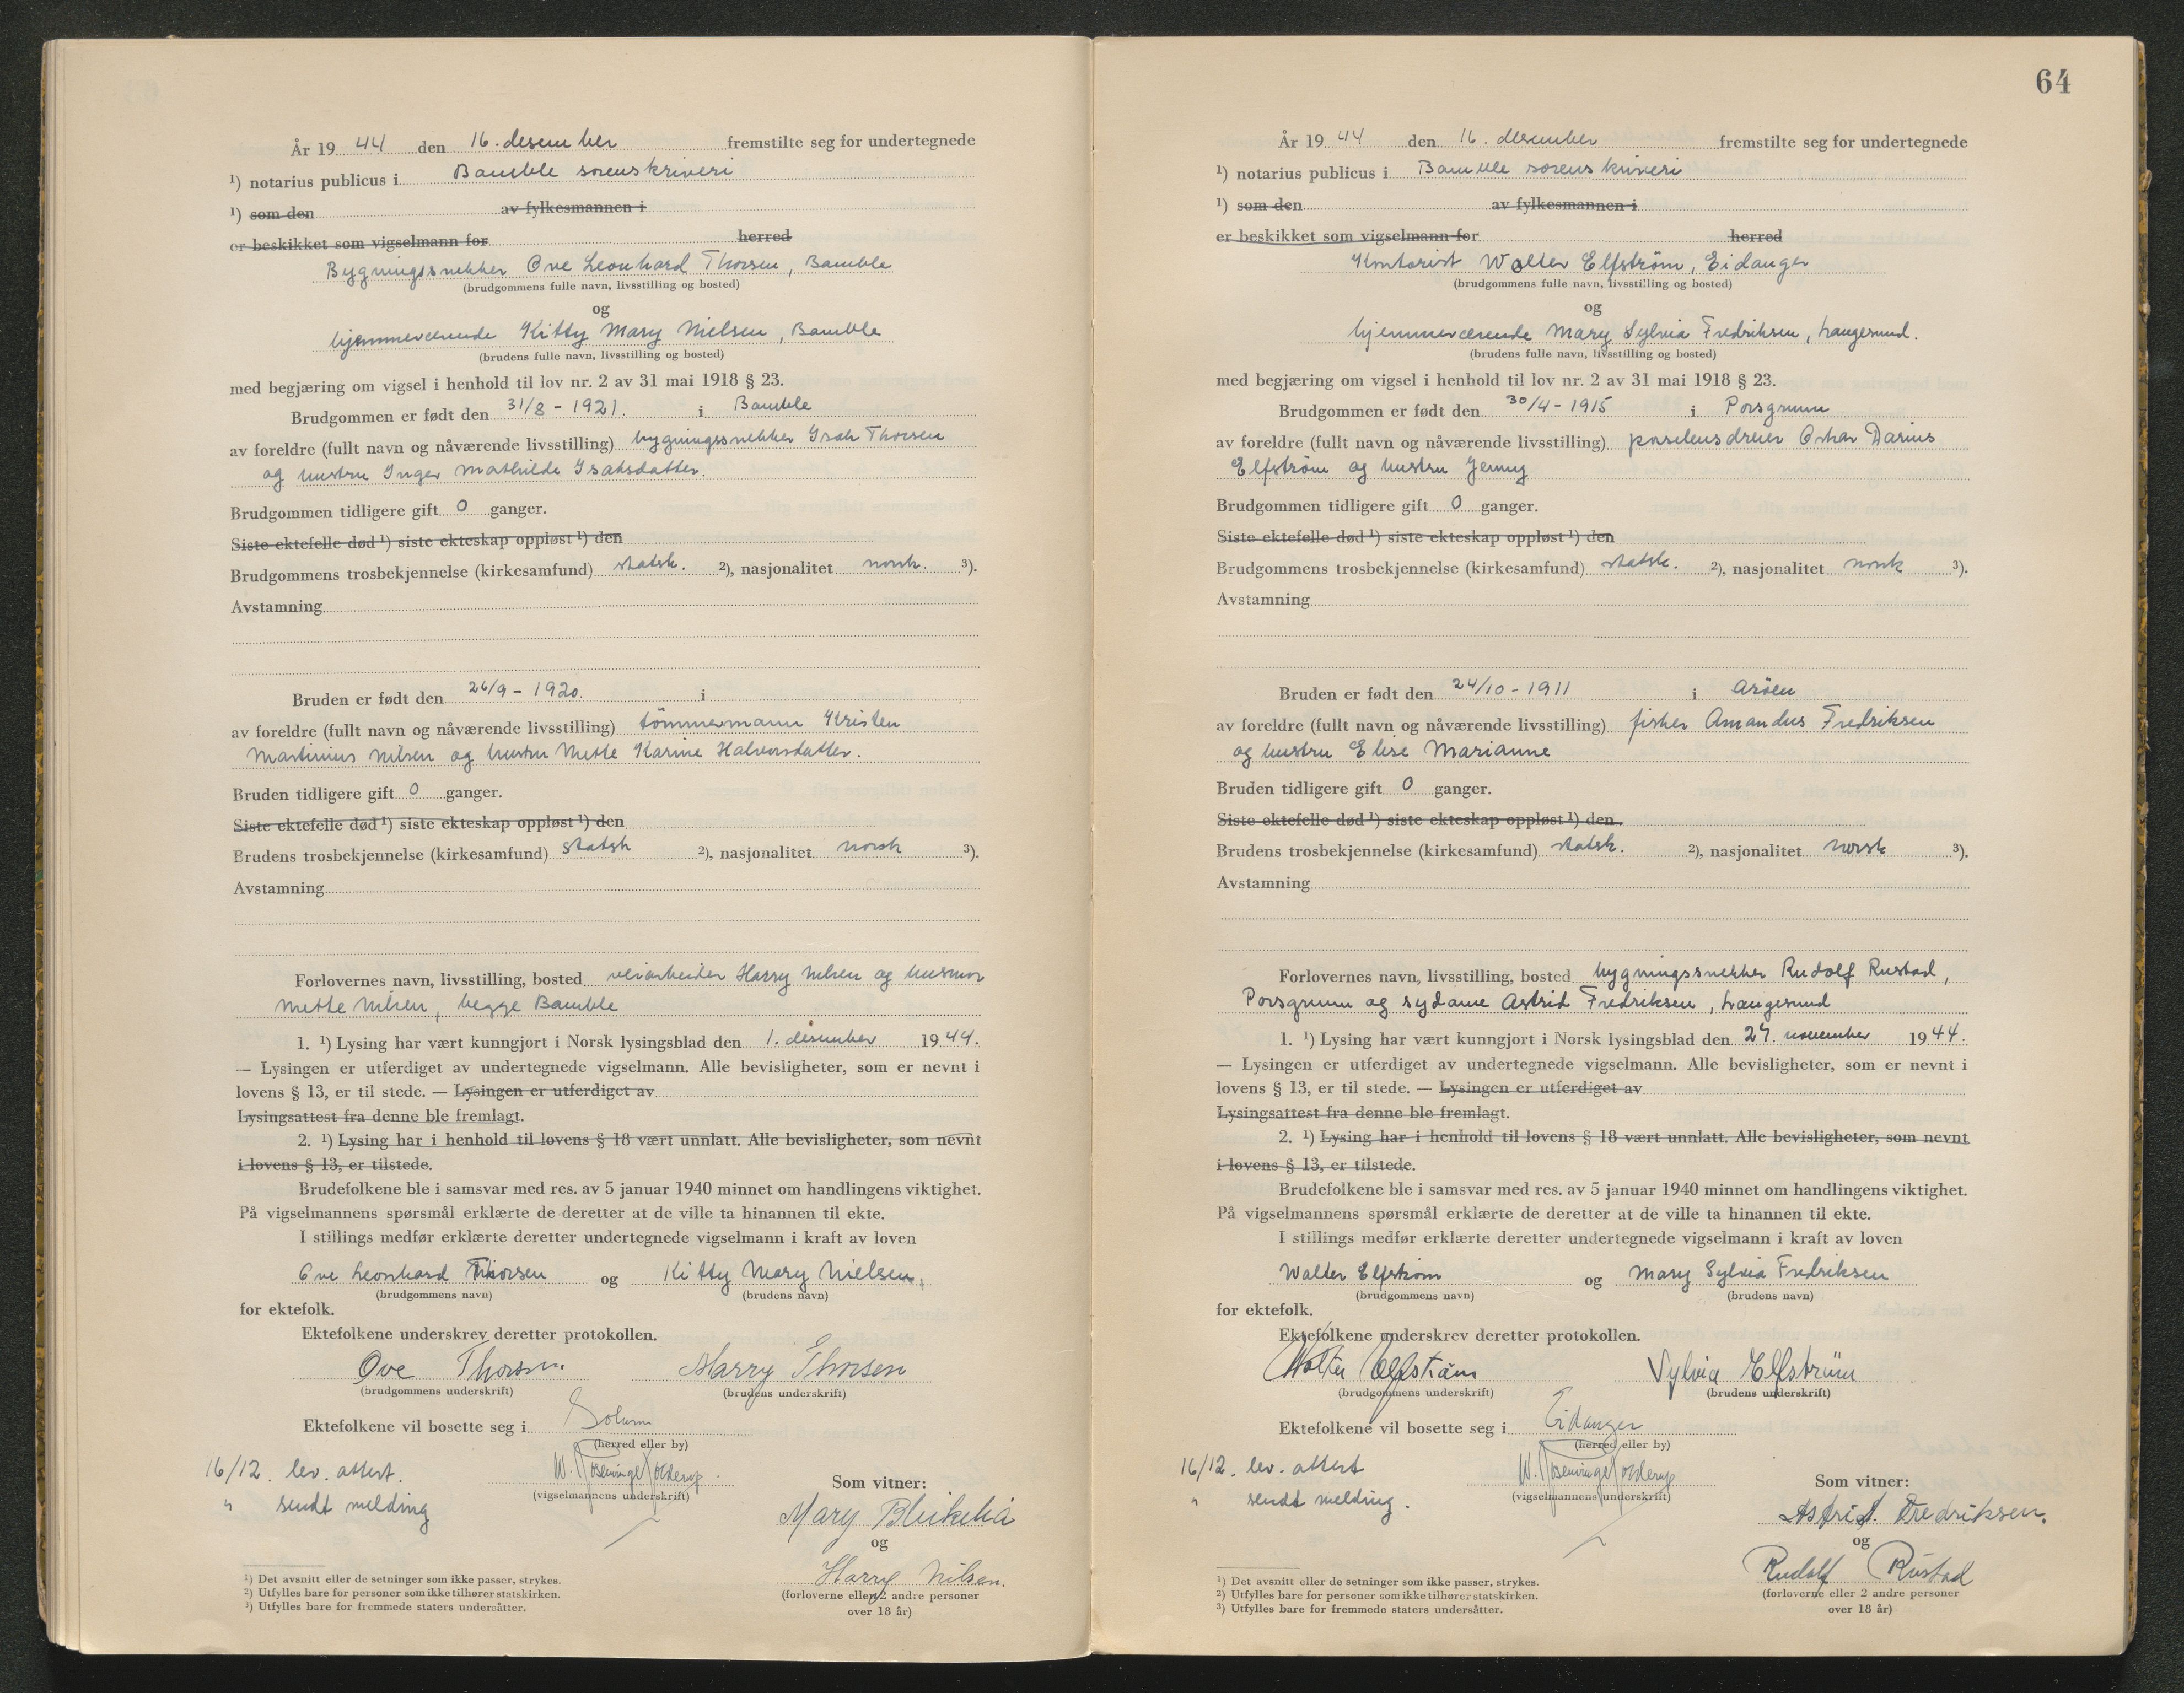 År 19 44 den 16. desember fremstilte seg for undertegnede
¹) notarius publicus i Bamble sorenskriveri
¹) som den av fylkesmannen i
er beskikket som vigselmann for herred
Bygningssnekker Ove Leonhard Thorsen, Bamble
(brudgommens fulle navn, livsstilling og bosted)
og
hjemmeværende Kitty Mary Nielsen, Bamble
(brudens fulle navn, livsstilling og bosted)
med begjæring om vigsel i henhold til lov nr. 2 av 31 mai 1918 § 23.
Brudgommen er født den 31/8 - 1921. i Bamble
av foreldre (fullt navn og nåværende livsstilling) bygningssnekker Isak Thorsen
og hustru Inger Mathilde Isaksdatter.
Brudgommen tidligere gift 0 ganger.
Siste ektefelle død ¹) siste ekteskap oppløst ¹) den
Brudgommens trosbekjennelse (kirkesamfund) statsk. ²), nasjonalitet norsk. ³).
Avstamning
Bruden er født den 26/9 - 1920. i
av foreldre (fullt navn og nåværende livsstilling) tömmermann Kristen
Martinius Nilsen og hustru Mette Karine Halvorsdatter.
Bruden tidligere gift 0 ganger.
Siste ektefelle død ¹) siste ekteskap oppløst ¹) den
Brudens trosbekjennelse (kirkesamfund) statsk ²), nasjonalitet norsk ³).
Avstamning
Forlovernes navn, livsstilling, bosted veiarbeider Harry Nilsen og husmor
Mette Nilsen, begge Bamble
1. ¹) Lysing har vært kunngjort i Norsk lysingsblad den 1. desember 19 44.
— Lysingen er utferdiget av undertegnede vigselmann. Alle bevisligheter, som er nevnt i
lovens § 13, er til stede. — Lysingen er utferdiget av
Lysingsattest fra denne ble fremlagt.
2. ¹) Lysing har i henhold til lovens § 18 vært unnlatt. Alle bevisligheter, som nevnt
i lovens § 13, er tilstede.
Brudefolkene ble i samsvar med res. av 5 januar 1940 minnet om handlingens viktighet.
På vigselmannens spørsmål erklærte de deretter at de ville ta hinannen til ekte.
I stillings medfør erklærte deretter undertegnede vigselmann i kraft av loven
Ove Leonhard Thorsen og Kitty Mary Nielsen,
(brudgommens navn) (brudens navn)
for ektefolk.
Ektefolkene underskrev deretter protokollen.
Ove Thorsen. Marry Thorsen
(brudgommens underskrift) (brudens underskrift)
Ektefolkene vil bosette seg i Solum
(herred eller by)
16/12. lev. attest. W.
(vigselmannens underskrift) Som vitner:
" sendt melding
Mary
og
Harry Nilsen.
(forloverne eller 2 andre personer
over 18 år)
¹) Det avsnitt eller de setninger som ikke passer, strykes.
²) Utfylles bare for personer som ikke tilhører statskirken.
³) Utfylles bare for fremmede staters undersåtter.
64
År 19 44 den 16. desember fremstilte seg for undertegnede
¹) notarius publicus i Bamble sorenskriveri
¹) som den av fylkesmannen i
er beskikket som vigselmann for herred
Kontorist Walter Elfström, Eidanger
(brudgommens fulle navn, livsstilling og bosted)
og
hjemmeværende Mary Sylvia Fredriksen, Langesund.
(brudens fulle navn, livsstilling og bosted)
med begjæring om vigsel i henhold til lov nr. 2 av 31 mai 1918 § 23.
Brudgommen er født den 30/4 - 1915 i Porsgrunn
av foreldre (fullt navn og nåværende livsstilling) porselensdreier Oskar Darius
Elfström og hustru Jenny
Brudgommen tidligere gift 0 ganger.
Siste ektefelle død ¹) siste ekteskap oppløst ¹) den
Brudgommens trosbekjennelse (kirkesamfund) statsk. ²), nasjonalitet norsk ³).
Avstamning
Bruden er født den 24/10 - 1911 i Aröen
av foreldre (fullt navn og nåværende livsstilling) fisker Amandus Fredriksen
og hustru Elise Marianne
Bruden tidligere gift 0 ganger.
Siste ektefelle død ¹) siste ekteskap oppløst ¹) den
Brudens trosbekjennelse (kirkesamfund) statsk. ²), nasjonalitet norsk ³).
Avstamning
Forlovernes navn, livsstilling, bosted bygningssnekker Rudolf Rustad,
Porsgrunn og sydame Astrid Fredriksen, Langesund
1. ¹) Lysing har vært kunngjort i Norsk lysingsblad den 27. november 19 44.
— Lysingen er utferdiget av undertegnede vigselmann. Alle bevisligheter, som er nevnt i
lovens § 13, er til stede. — Lysingen er utferdiget av
Lysingsattest fra denne ble fremlagt.
2. ¹) Lysing har i henhold til lovens § 18 vært unnlatt. Alle bevisligheter, som nevnt
i lovens § 13, er tilstede.
Brudefolkene ble i samsvar med res. av 5 januar 1940 minnet om handlingens viktighet.
På vigselmannens spørsmål erklærte de deretter at de ville ta hinannen til ekte.
I stillings medfør erklærte deretter undertegnede vigselmann i kraft av loven
Walter Elfström og Mary Sylvia Fredriksen
(brudgommens navn) (brudens navn)
for ektefolk.
Ektefolkene underskrev deretter protokollen.
Walter Elfström Sylvia Elfström
(brudgommens underskrift) (brudens underskrift)
Ektefolkene vil bosette seg i Eidanger
(herred eller by)
16/12. lev. attest W.
(vigselmannens underskrift) Som vitner:
" sendt melding.
Astrid Fredriksen.
og
Rudolf Rustad
(forloverne eller 2 andre personer
over 18 år)
¹) Det avsnitt eller de setninger som ikke passer, strykes.
²) Utfylles bare for personer som ikke tilhører statskirken.
³) Utfylles bare for fremmede staters undersåtter.